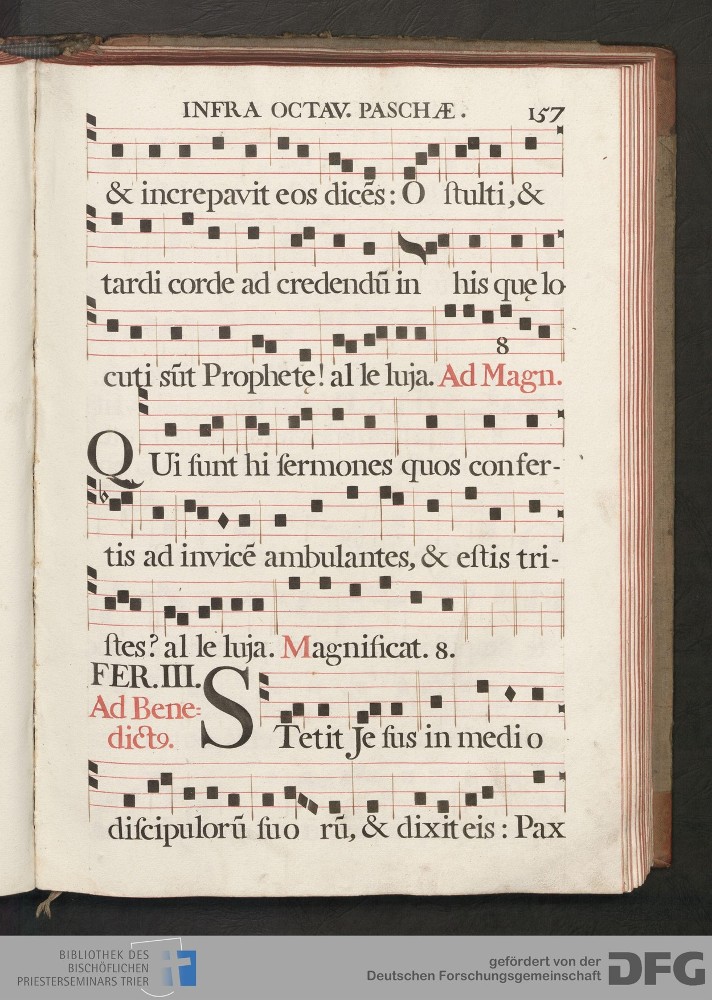 INFRA OCTAV. PASCHÆ. 157
& increpavit eos dicēs: O ſtulti, &
tardi corde ad credendū in his quę lo
8
cuti sūt Prophetę! al le luja. Ad Magn.
QUi ſunt hi ſermones quos confer-
tis ad invicē ambulantes, & eſtis tri-
ſtes? al le luja. Magnificat. 8.
FER. III.
Ad Bene=
dictꝯ.
STetit Jeſus in medio
diſcipulorū ſuo rū, & dixit eis: Pax
BIBLIOTHEK DES
BISCHÖFLICHEN
PRIESTERSEMINARS TRIER
gefördert von der
Deutschen Forschungsgemeinschaft
DFG